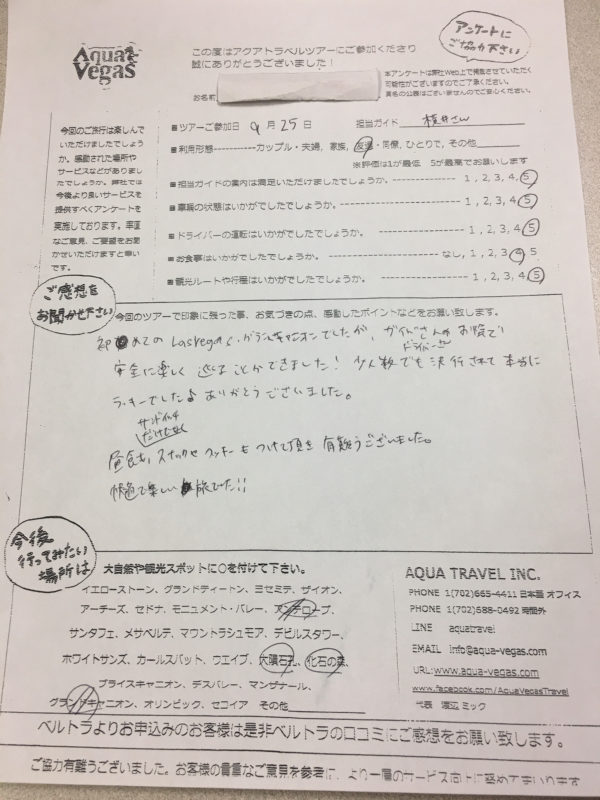 Aqua Vegas
この度はアクアトラベルツアーにご参加くださり
誠にありがとうございました！
アンケートに
ご協力下さい
本アンケートは弊社Web上で掲載させていただく
可能性がございますのでご了承ください。
実名の公表はございませんのでご安心ください。
お名前
今回のご旅行は楽しんで
いただけましたでしょう
か。感動された場所や
サービスなどがありまし
たでしょうか。弊社では
今後より良いサービスを
提供すべくアンケートを
実施しております。率直
なご意見、ご要望をお聞
かせいただけますと幸い
です。
■ツアーご参加日 9月25日 担当ガイド 横井さん
■利用形態-----------カップル・夫婦, 家族, 友達・同僚, ひとりで, その他
※評価は1が最低 5が最高でお願いします
■担当ガイドの案内は満足いただけましたでしょうか。---------------- 1, 2, 3, 4, 5
■車輛の状態はいかがでしたでしょうか。---------------- 1, 2, 3, 4, 5
■ドライバーの運転はいかがでしたでしょうか。---------------- 1, 2, 3, 4, 5
■お食事はいかがでしたでしょうか。---------------- なし, 1, 2, 3, 4, 5
■観光ルートや行程はいかがでしたでしょうか。---------------- 1, 2, 3, 4, 5
ご感想を
お聞かせ下さい
今回のツアーで印象に残った事、お気づきの点、感動したポイントなどをお願い致します。
初めてのLasVegas、グランドキャニオンでしたが、ガイドさん ドライバーさん お陰で
安全に楽しく巡ることができました！少人数でも決行されて本当に
ラッキーでした♪ありがとうございました。
サンドイッチ
だけでなく
昼食も、スナックやクッキーもつけて頂き有難うございました。
快適で楽しい旅でした!!
今後
行ってみたい
場所は
大自然や観光スポットに○を付けて下さい。
イエローストーン、グランドティートン、ヨセミテ、ザイオン、
アーチーズ、セドナ、モニュメント・バレー、アンテロープ、
サンタフェ、メサベルデ、マウントラシュモア、デビルスタワー、
ホワイトサンズ、カールスバット、ウエイブ、大隕石孔、化石の森、
ブライスキャニオン、デスバレー、マンザナール、
グランドキャニオン、オリンピック、セコイア その他
AQUA TRAVEL INC.
PHONE 1(702)665-4411 日本語 オフィス
PHONE 1(702)588-0492 時間外
LINE aquatravel
EMAIL info@aqua-vegas.com
URL:www.aqua-vegas.com
www.facebook.com/AquaVegasTravel
代表 渡辺 ミック
ベルトラよりお申込みのお客様は是非ベルトラの口コミにご感想をお願い致します。
ご協力有難うございました。お客様の貴重なご意見を参考に、より一層のサービス向上に努めてまいります